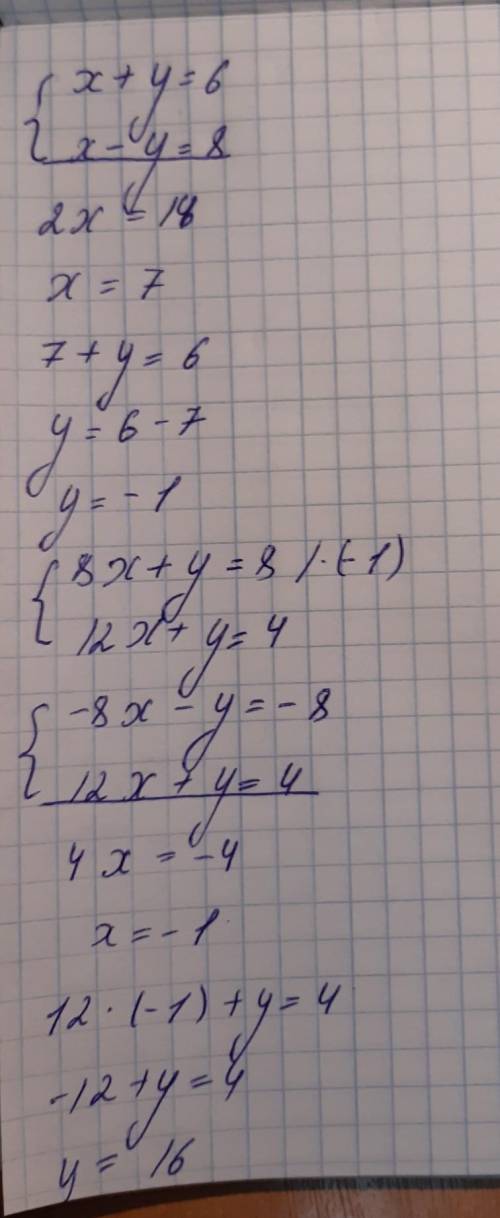 x + y = 6
x - y = 8
2x = 18
x = 7
7 + y = 6
y = 6 - 7
y = - 1
8x + y = 8 / · (-1)
12x + y = 4
-8x - y = - 8
12x + y = 4
4x = -4
x = - 1
12 · (-1) + y = 4
-12 + y = 4
y = 16